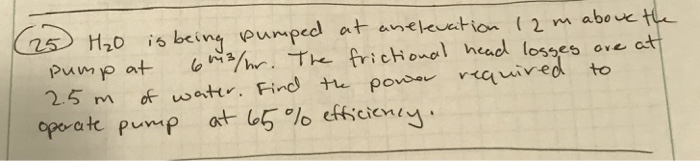 25 H2O is being pumped at an elevation 12 m above the
pump at 6 m3/hr. The frictional head losses are at
2.5 m of water. Find the power required to
operate pump at 65% efficiency.